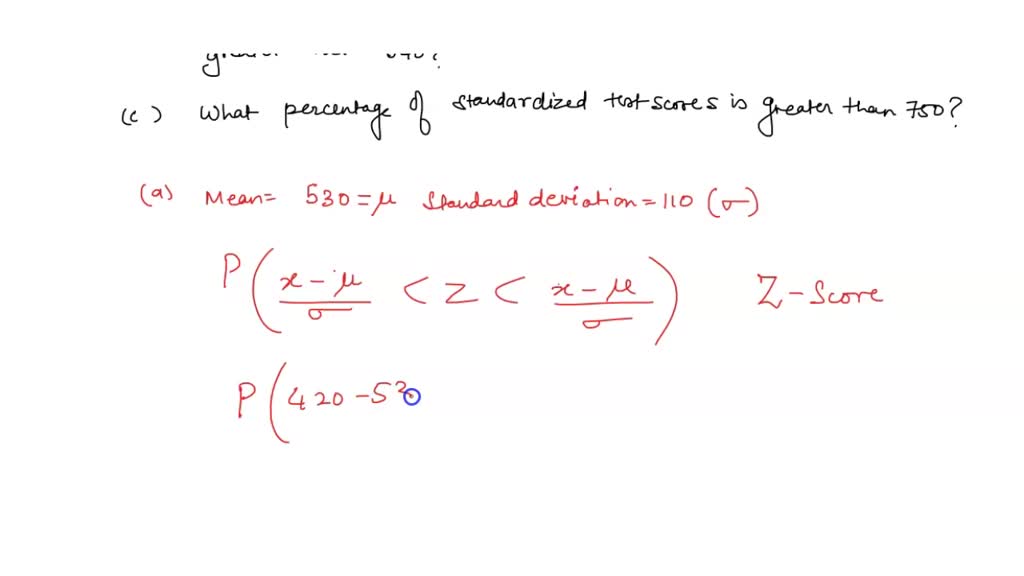 (c) What percentage of standardized test scores is greater than 750?
(a) Mean = 530 = μ Standard deviation = 110 (σ)
P( (x - μ)/σ < Z < (x - μ)/σ ) Z-Score
P( 420 - 530